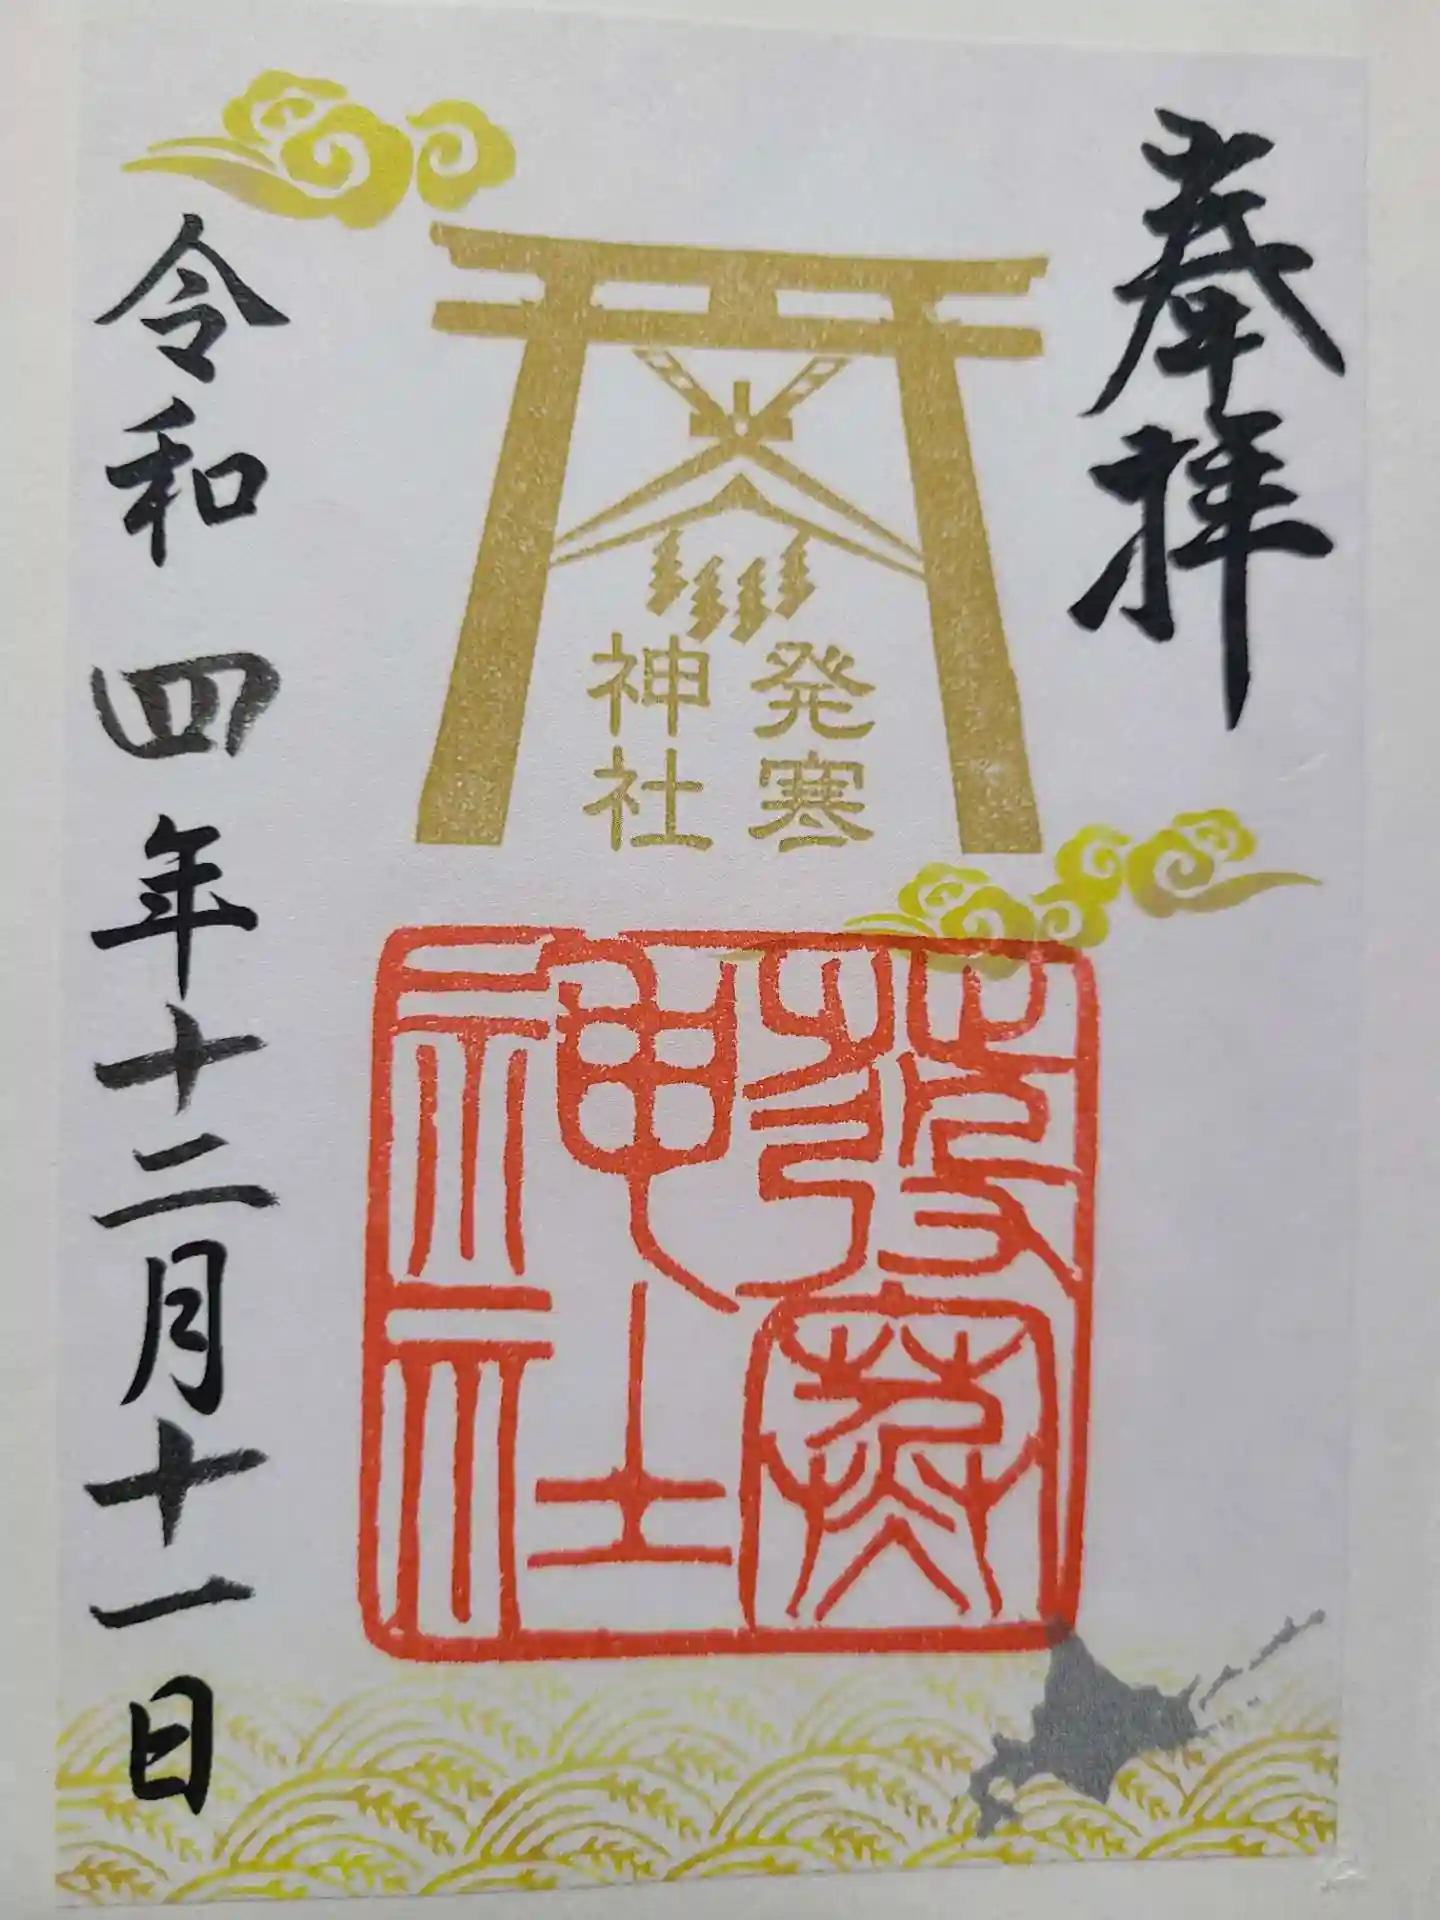 奉拝
発寒
神社
発寒
神社
令和四年十二月十一日